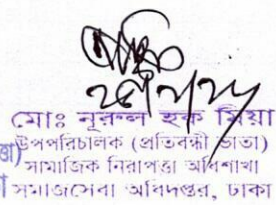 মোঃ নূরুল হক মিয়া
উপপরিচালক (প্রতিবন্ধী ভাতা)
সামাজিক নিরাপত্তা অধিশাখা
সমাজসেবা অধিদপ্তর, ঢাকা